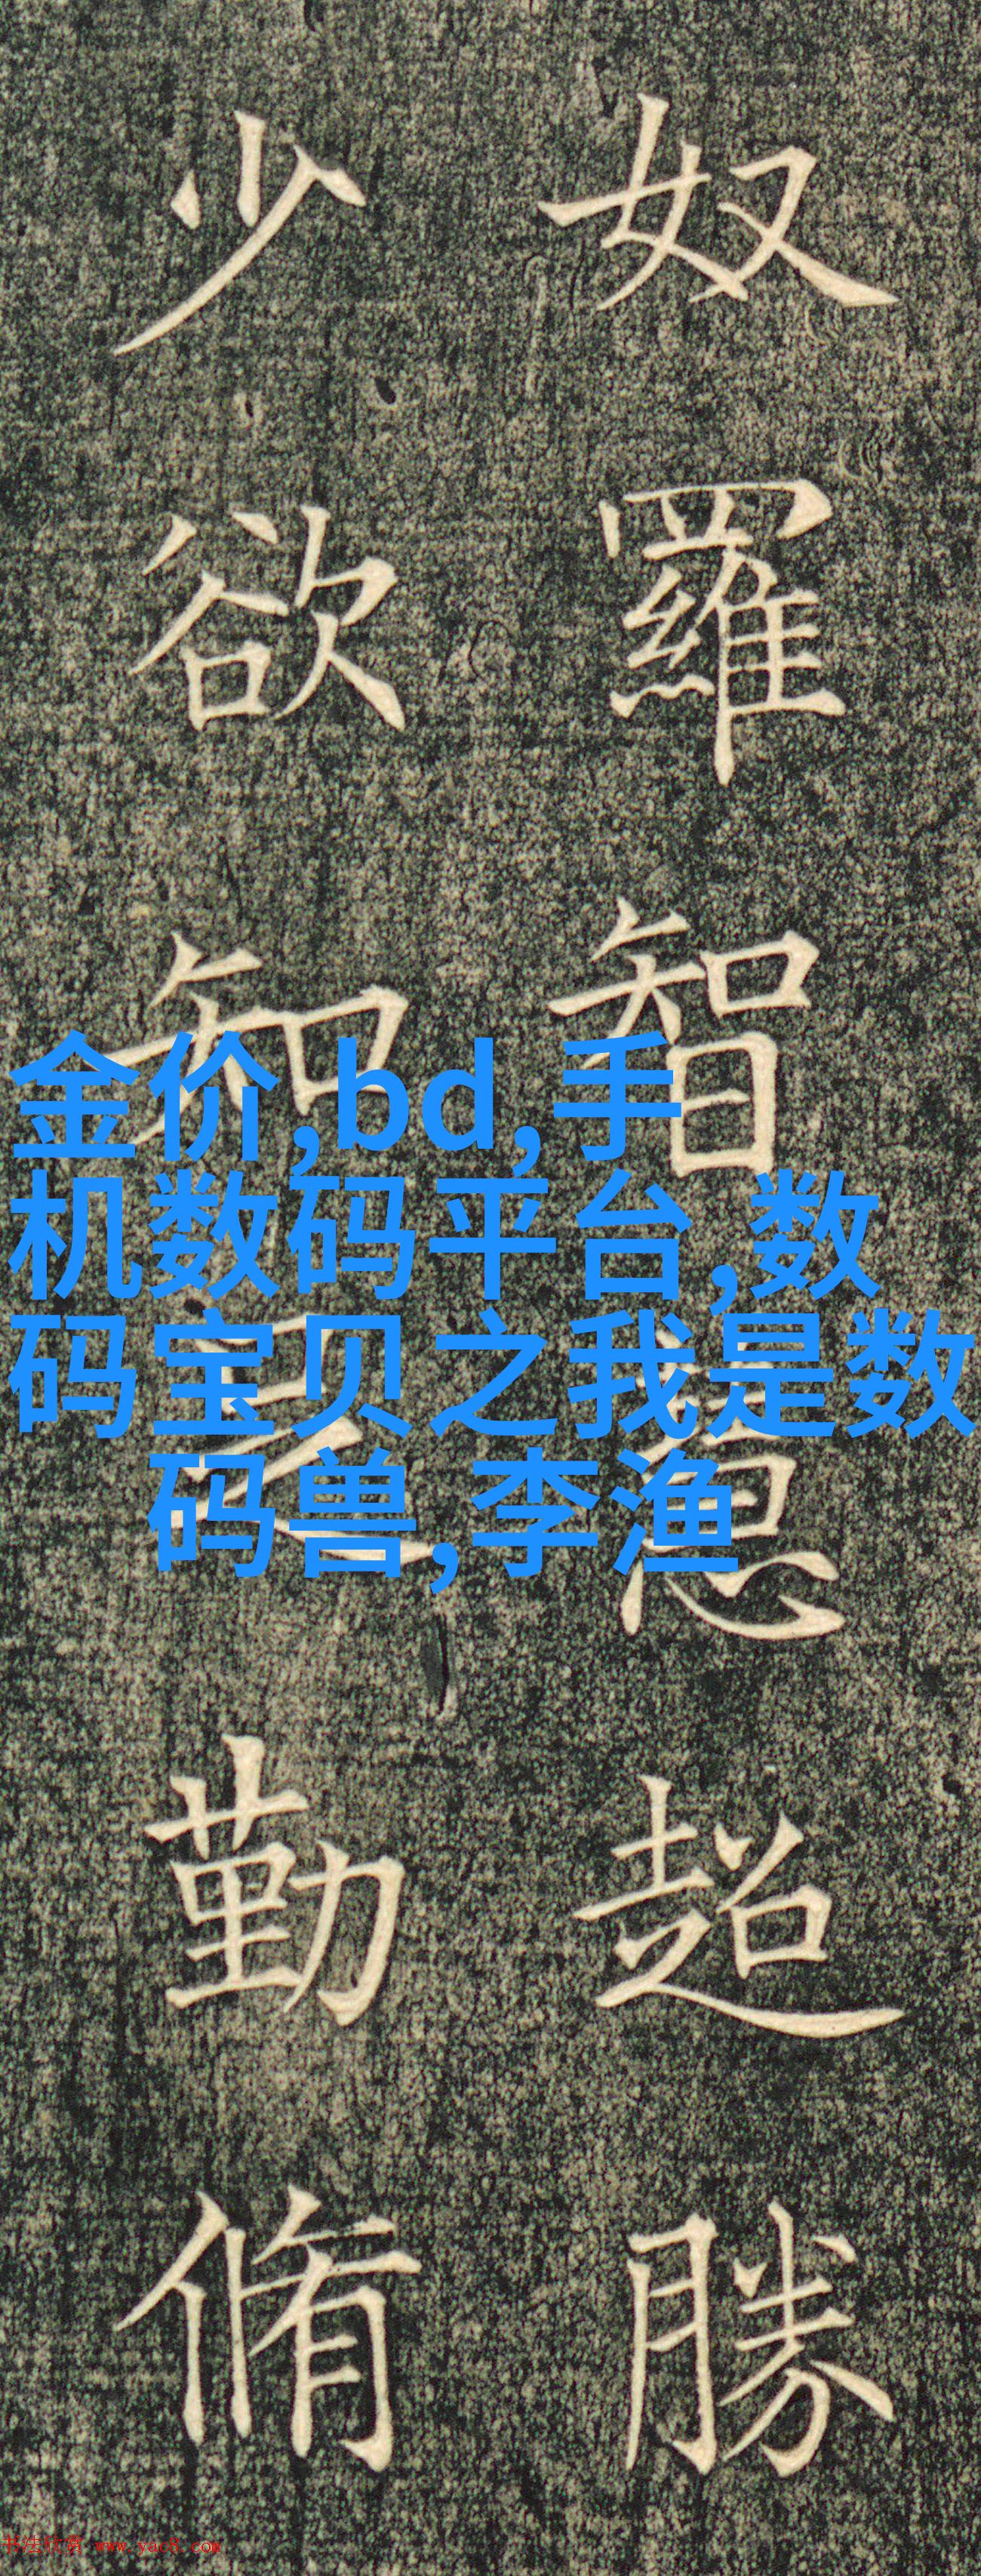 奴羅智慧超勝
少欲知足勤脩
金价,bd,手
机数码平台,数
码宝贝之我是数
码兽,李渔
书法欣赏 www.yac8.com